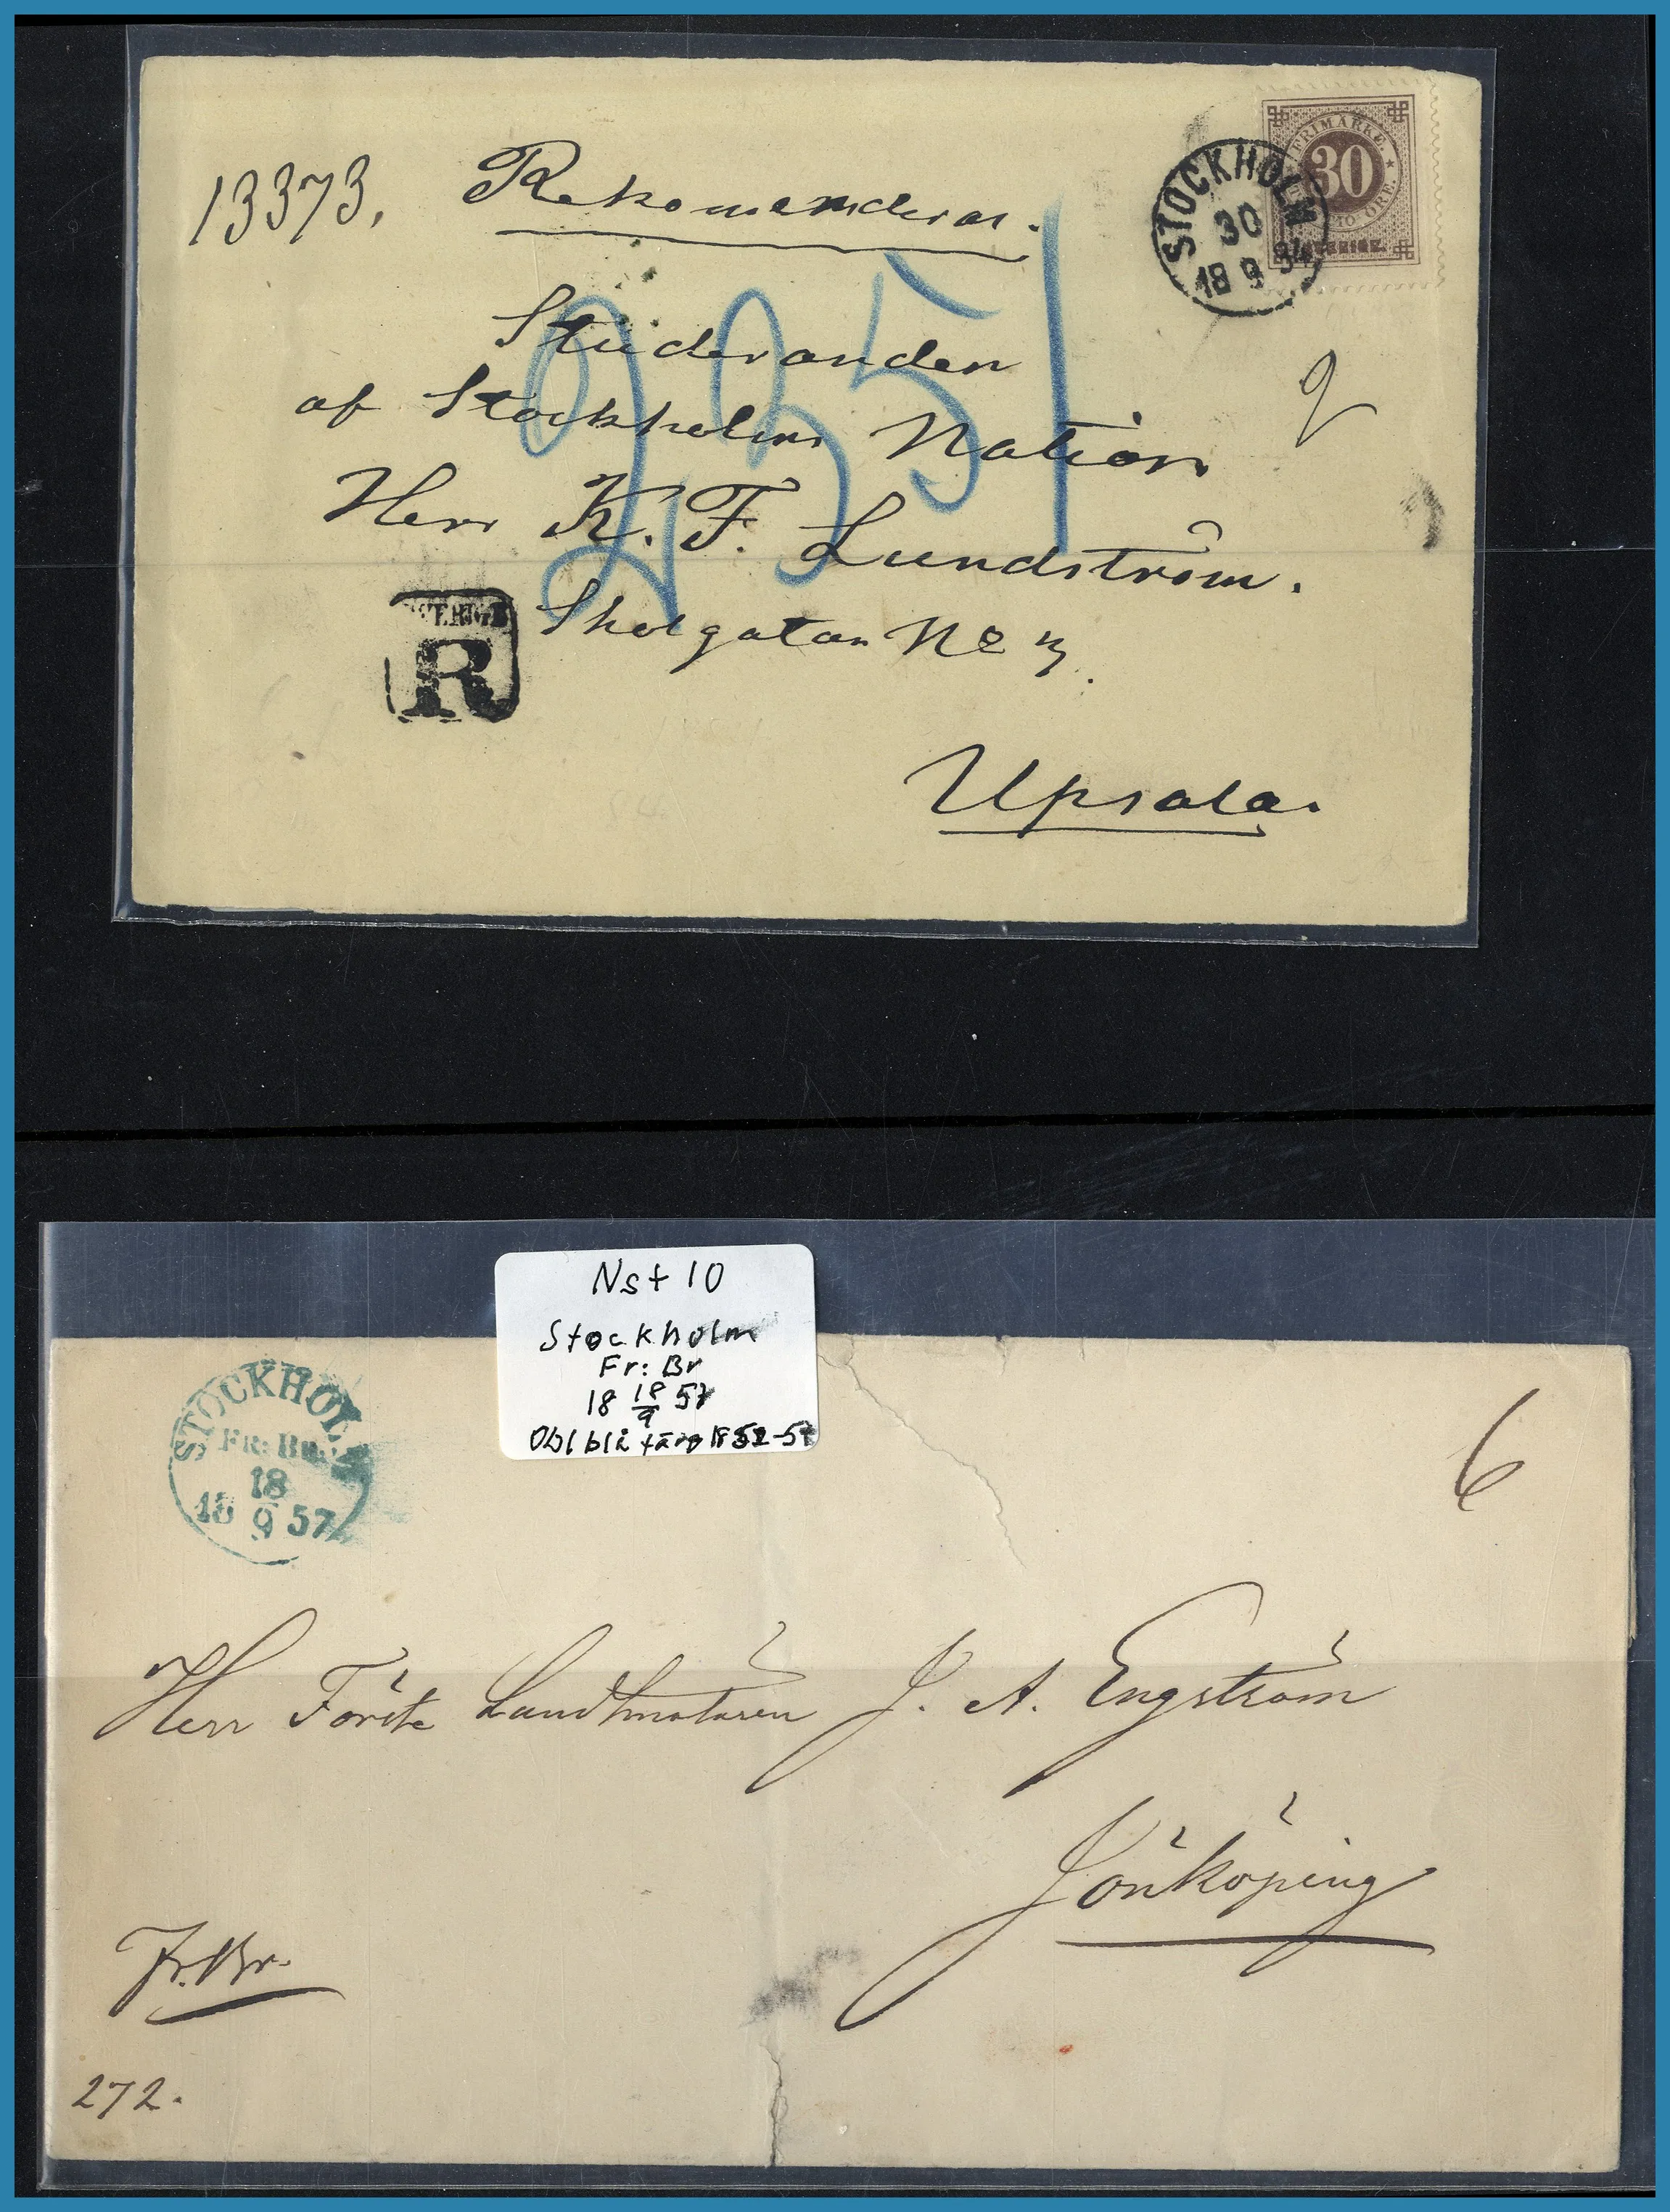 13373. Rekomenderas.
FRIMÄRKE.
30
SVERIGE.
STOCKHOLM
30
18 9 84
Studeranden
af Stockholms Nation
Herr K. F. Lundström.
R
Skolgatan No 3.
Upsala.
Nst 10
Stockholm
Fr: Br
18 18/9 57
Obl blå färg 1852-57
STOCKHOLM
FR: BR:
18
18 9 57
6
Herr Förste Landtmätaren J. A. Engström
Jönköping
Fr. Br.
272.